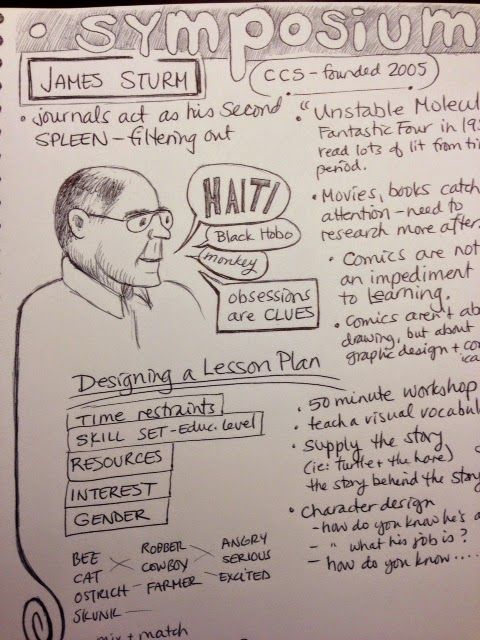 • Symposium
JAMES STURM
CCS - founded 2005
• Journals act as his second
SPLEEN - filtering out
HAITI
Black Hobo
monkey
obsessions
are CLUES
• "Unstable Molecul
Fantastic Four in 19
read lots of lit from ti
period.
• Movies, books catch
attention - need to
research more after
• Comics are not
an impediment
to learning.
• Comics aren't ab
drawing, but about
graphic design + co
Designing a Lesson Plan
Time restraints
SKILL SET - Educ. level
RESOURCES
INTEREST
GENDER
BEE ROBBER ANGRY
CAT COWBOY SERIOUS
OSTRICH - FARMER - EXCITED
SKUNK
mix + match
• 50 minute workshop
• teach a visual vocabul
• supply the story
(ie: turtle + the hare)
the story behind the story
• character design
- how do you know he's a
- " what his job is?
- how do you know....